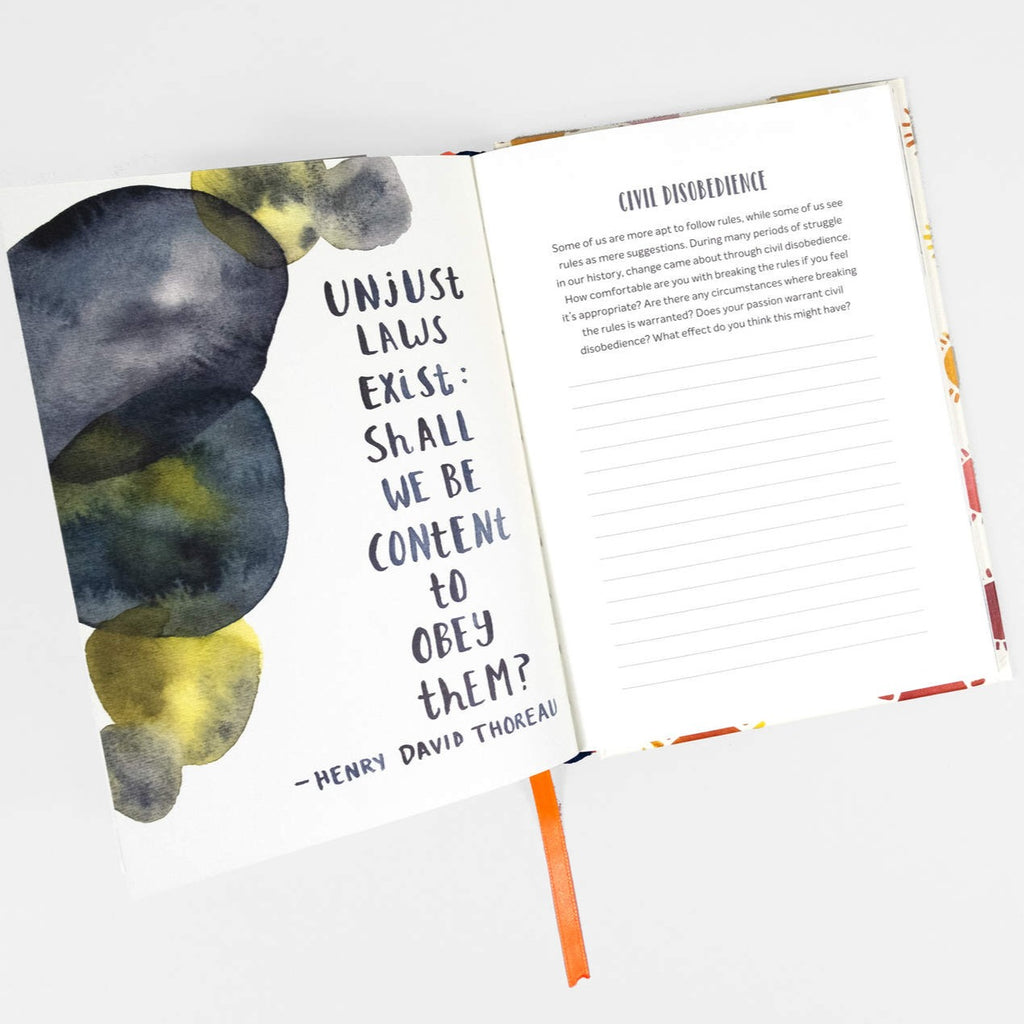 UNJUST
LAWS
EXIST:
SHALL
WE BE
CONTENT
TO
OBEY
THEM?
– HENRY DAVID THOREAU
CIVIL DISOBEDIENCE
Some of us are more apt to follow rules, while some of us see
rules as mere suggestions. During many periods of struggle
in our history, change came about through civil disobedience.
How comfortable are you with breaking the rules if you feel
it's appropriate? Are there any circumstances where breaking
the rules is warranted? Does your passion warrant civil
disobedience? What effect do you think this might have?